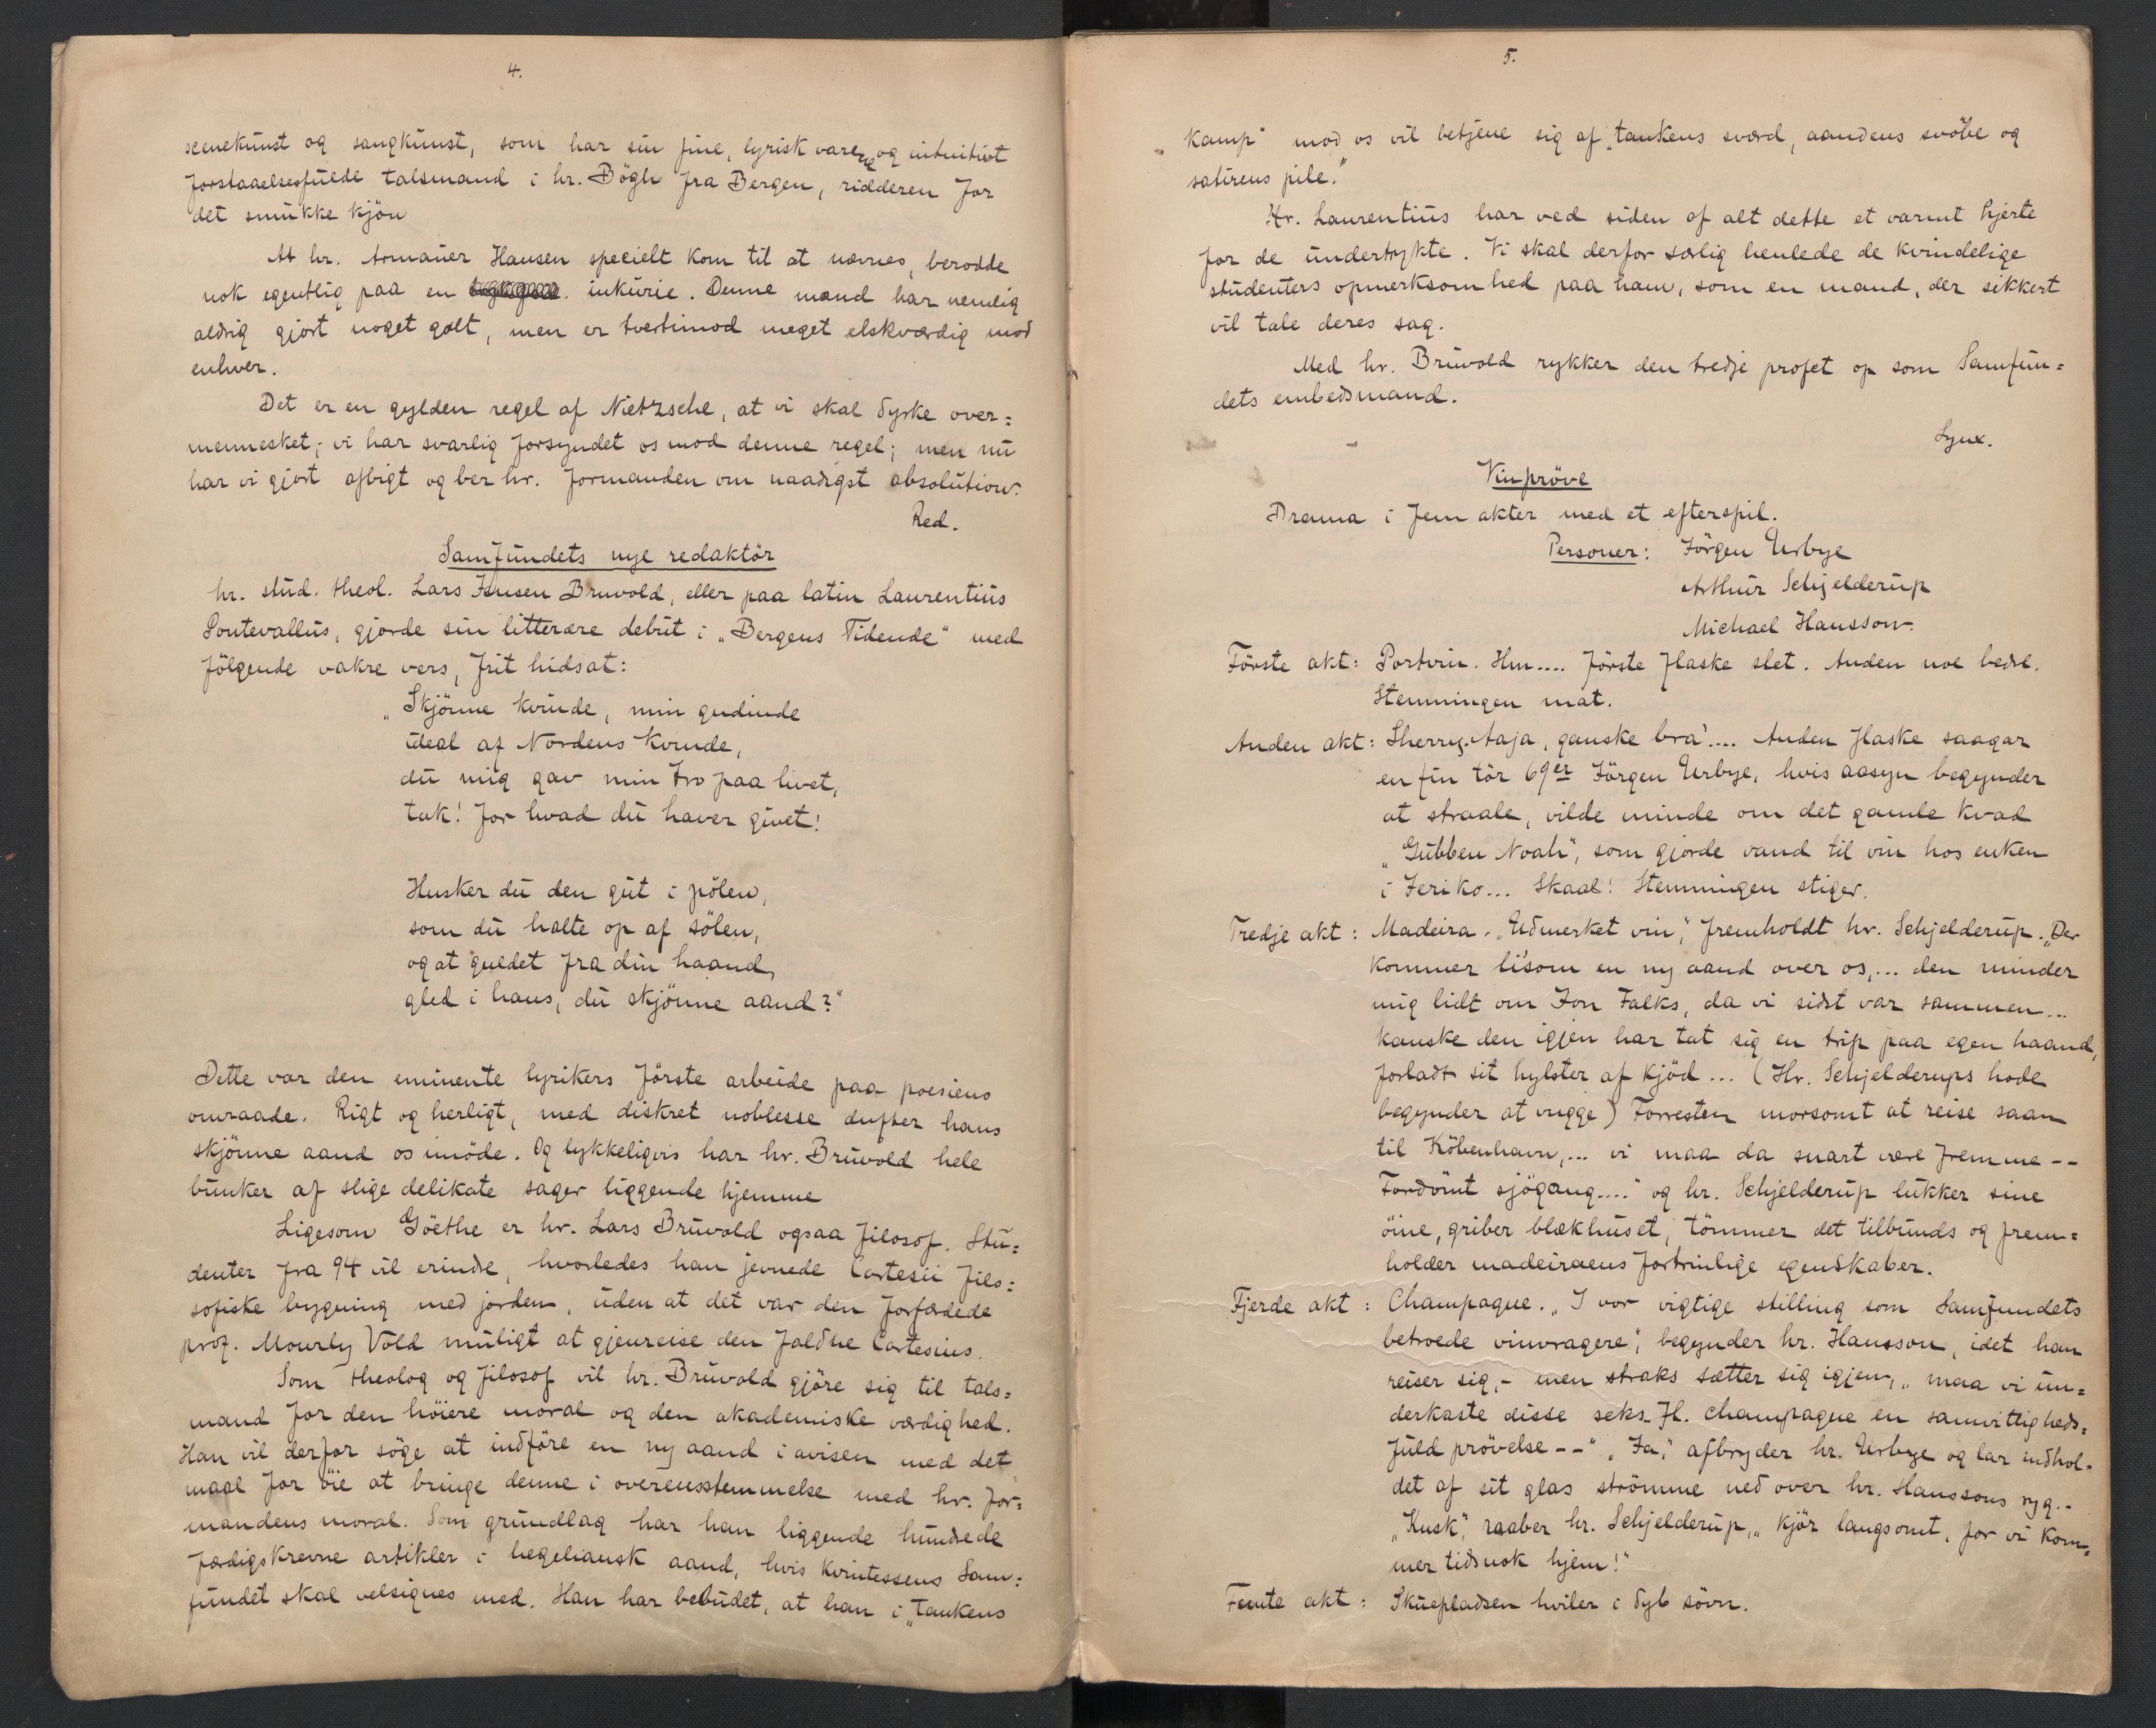 4.
scenekunst og sangkunst, som har sin fine, lyrisk vare og intuitivt
forstaaelsesfulde talsmand i hr. Bögh fra Bergen, ridderen for
det smukke kjön
At hr. Armauer Hansen specielt kom til at nævnes, berodde
nok egentlig paa en inkurie. Denne mand har nemlig
aldrig gjort noget galt, men er tvertimod meget elskværdig mod
enhver.
Det er en gylden regel af Nietzsche, at vi skal dyrke over=
mennesket; vi har svarlig forsyndet os mod denne regel; men nu
har vi gjort afbigt og ber hr. formanden om naadigst absolution.
Red.
Samfundets nye redaktör
hr. stud. theol. Lars Jensen Bruvold, eller paa latin Laurentius
Pontevallus, gjorde sin litterære debut i „Bergens Tidende" med
fölgende vakre vers, frit hidsat:
„Skjönne kvinde, min gudinde
ideal af Nordens kvinde,
du mig gav min tro paa livet,
tak! for hvad du haver givet!
Husker du den gut i pölen,
som du halte op af sölen,
og at guldet fra din haand,
gled i hans, du skjönne aand?"
Dette var den eminente lyrikers förste arbeide paa poesiens
omraade. Rigt og herligt, med diskret noblesse dufter hans
skjönne aand os imöde. Og lykkeligvis har hr. Bruvold hele
bunker af slige delikate sager liggende hjemme
Ligesom Göethe er hr. Lars Bruvold ogsaa filosof. Stu=
denter fra 94 vil erindre, hvorledes han jevnede Cartesii filo=
sofiske bygning med jorden, uden at det var den forfærdede
prof. Mourly Vold muligt at gjenreise den faldne Cartesius.
Som theolog og filosof vil hr. Bruvold gjöre sig til tals=
mand for den höiere moral og den akademiske værdighed.
Han vil derfor söge at indföre en ny aand i avisen med det
maal for öie at bringe denne i overensstemmelse med hr. for=
mandens moral. Som grundlag har han liggende hundrede
færdigskrevne artikler i hegeliansk aand, hvis kvintessens Sam=
fundet skal velsignes med. Han har bebudet, at han i „tankens
5.
kamp" mod os vil betjene sig af „tankens sværd, aandens svöbe og
satirens pile."
Hr. Laurentius har ved siden af alt dette et varmt hjerte
for de undertrykte. Vi skal derfor særlig henlede de kvindelige
studenters opmerksomhed paa ham, som en mand, der sikkert
vil tale deres sag.
Med hr. Bruvold rykker den tredje profet op som Samfun=
dets embedsmand.
Lynx.
Vinpröve
Drama i fem akter med et efterspil.
Personer: Jörgen Urbye
Arthur Schjelderup
Michael Hansson.
Förste akt: Portvin. Hm.... förste flaske slet. Anden noe bedre.
Stemningen mat.
Anden akt: Sherry. Aaja, ganske bra'.... Anden flaske saagar
en fin tör 69er Jörgen Urbye, hvis aasyn begynder
at straale, vilde minde om det gamle kvad
„Gubben Noah", som gjorde vand til vin hos enken
i Jeriko... Skaal! Stemningen stiger.
Tredje akt: Madeira. „Udmerket vin", fremholdt hr. Schjelderup. „Der
kommer li'som en ny aand over os,... den minder
mig lidt om Jon Falks, da vi sidst var sammen...
kanske den igjen har tat sig en trip paa egen haand,
forladt sit hylster af kjöd... (Hr. Schjelderups hode
begynder at vugge) Forresten morsomt at reise saan
til Köbenhavn,... vi maa da snart være fremme --
Fordömt sjögang...." og hr. Schjelderup lukker sine
öine, griber blækhuset, tömmer det tilbunds og frem=
holder madeiraens fortrinlige egenskaber.
Fjerde akt: Champagne. „I vor vigtige stilling som Samfundets
betroede vinvragere", begynder hr. Hansson, idet han
reiser sig, - men straks sætter sig igjen, „maa vi un=
derkaste disse seks fl. champagne en samvittigheds=
fuld prövelse --" „Ja," afbryder hr. Urbye og lar indhol=
det af sit glas strömme ned over hr. Hanssons ryg.-
„Kusk", raaber hr. Schjelderup, „kjör langsomt, for vi kom=
mer tidsnok hjem!"
Femte akt: Skuepladsen hviler i dyb sövn.